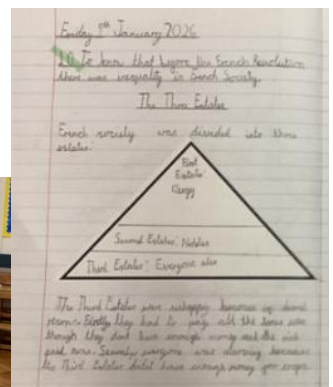 Friday 9th January 2026
LO: To know that before the French Revolution
there was inequality in French Society.
The Three Estates
French society was divided into three
estates:
First
Estate:
Clergy
Second Estates: Nobles
Third Estates: Everyone else
The Third Estates were unhappy because of
they had to pay all the taxes even
though they dont have enough money and the rich
paid none. Secondly everyone was starving because
the Third Estates didnt have enough money for